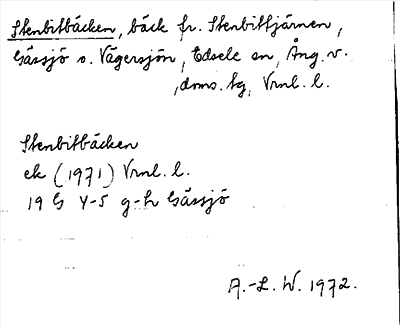 Stenbitbäcken, bäck fr. Stenbittjärnen,
Gässjö o. Vägersjön, Edsele sn, Ång. v.
,doms. tg, Vrnl. l.
Stenbitbäcken
ek (1971) Vrnl. l.
19 G 4-5 g-h Gässjö
A.-L. W. 1972.